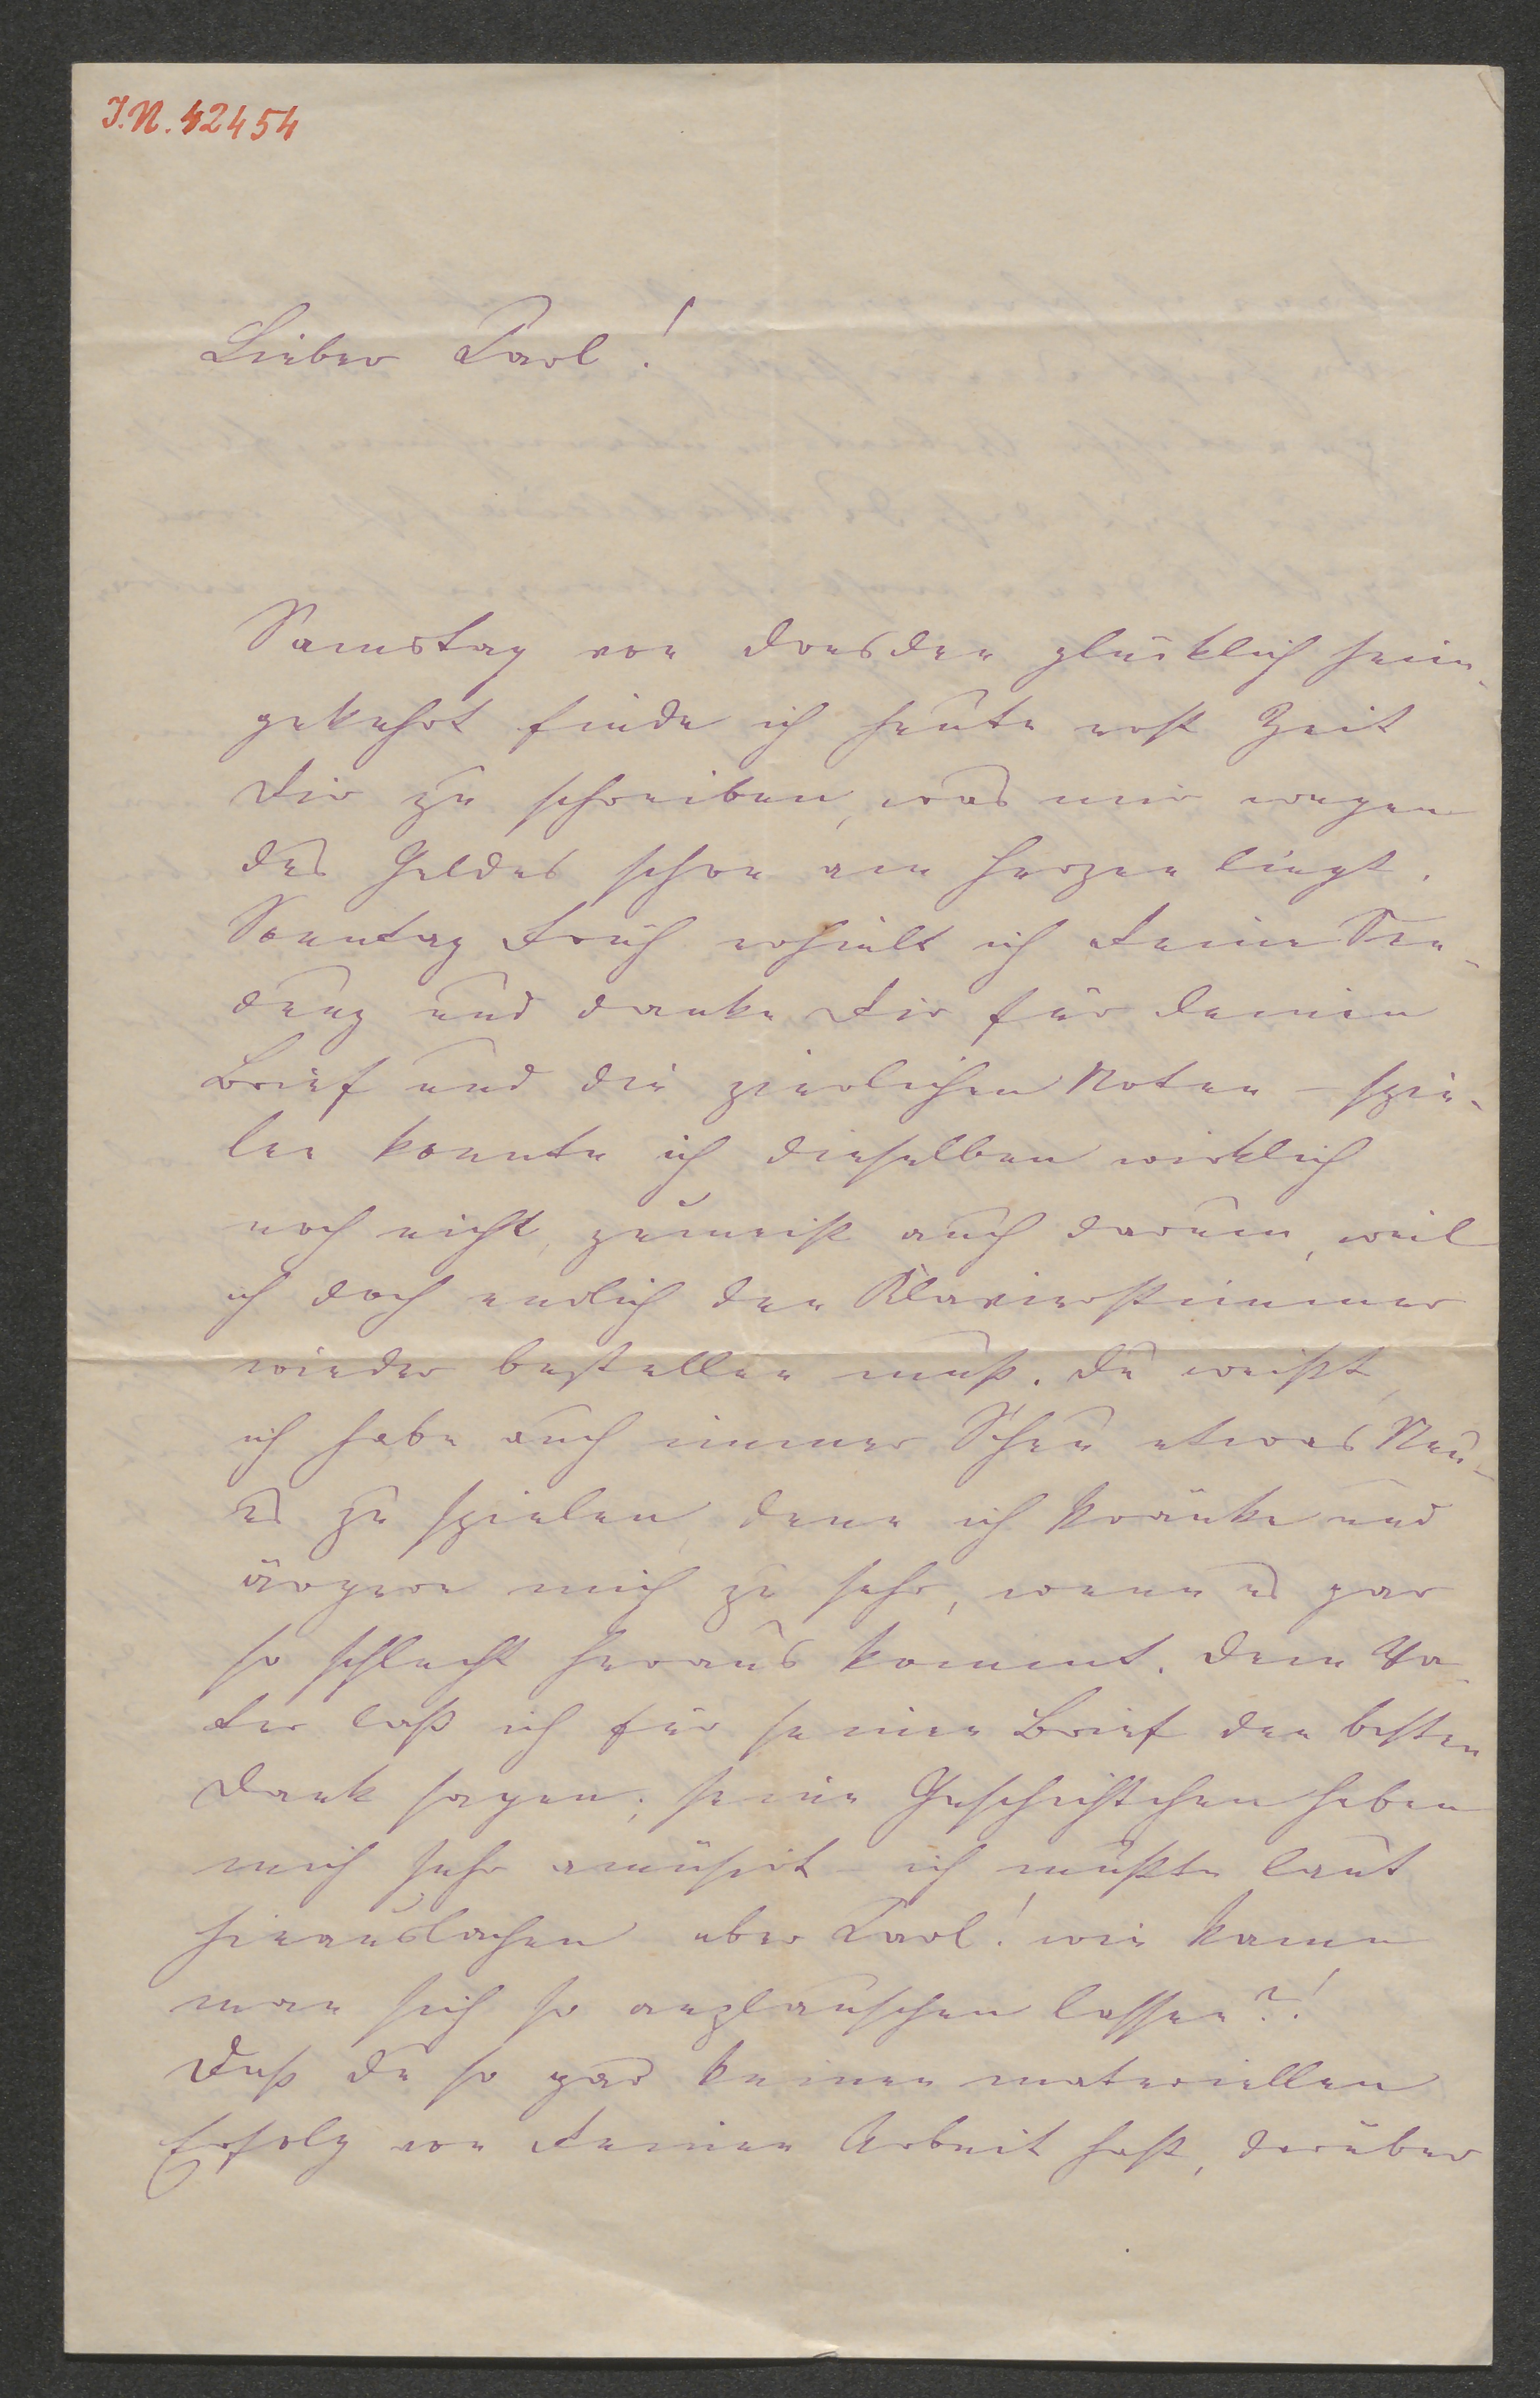 J.N. 42454
Lieber Carl!
Samstag von Dresden glücklich heim-
gekehrt finde ich heute erst Zeit
Dir zu schreiben, was mir wegen
des Geldes schon am Herzen liegt.
Sonntag Früh erhielt ich Deine Sen-
dung und danke Dir für Deinen
Brief und die zierlichen Noten – spie-
len konnte ich dieselben wirklich
noch nicht, zumeist auch darum, weil
ich doch endlich den Klavierstimmer
wieder bestellen muß. Du weißt,
ich habe auch immer Scheu etwas Neu-
es zu spielen, denn ich kränke und
ärgere mich zu sehr, wenn es gar
so schlecht heraus kommt. Dem Va-
ter laß ich für seinen Brief den besten
Dank sagen; seine Geschichtchen haben
mich sehr amüsirt – ich mußte laut
hinauslachen aber Carl! wie kann
man sich so anplauschen lassen?!
Daß Du so gar keinen materiellen
Erfolg von Deiner Arbeit hast, darüber